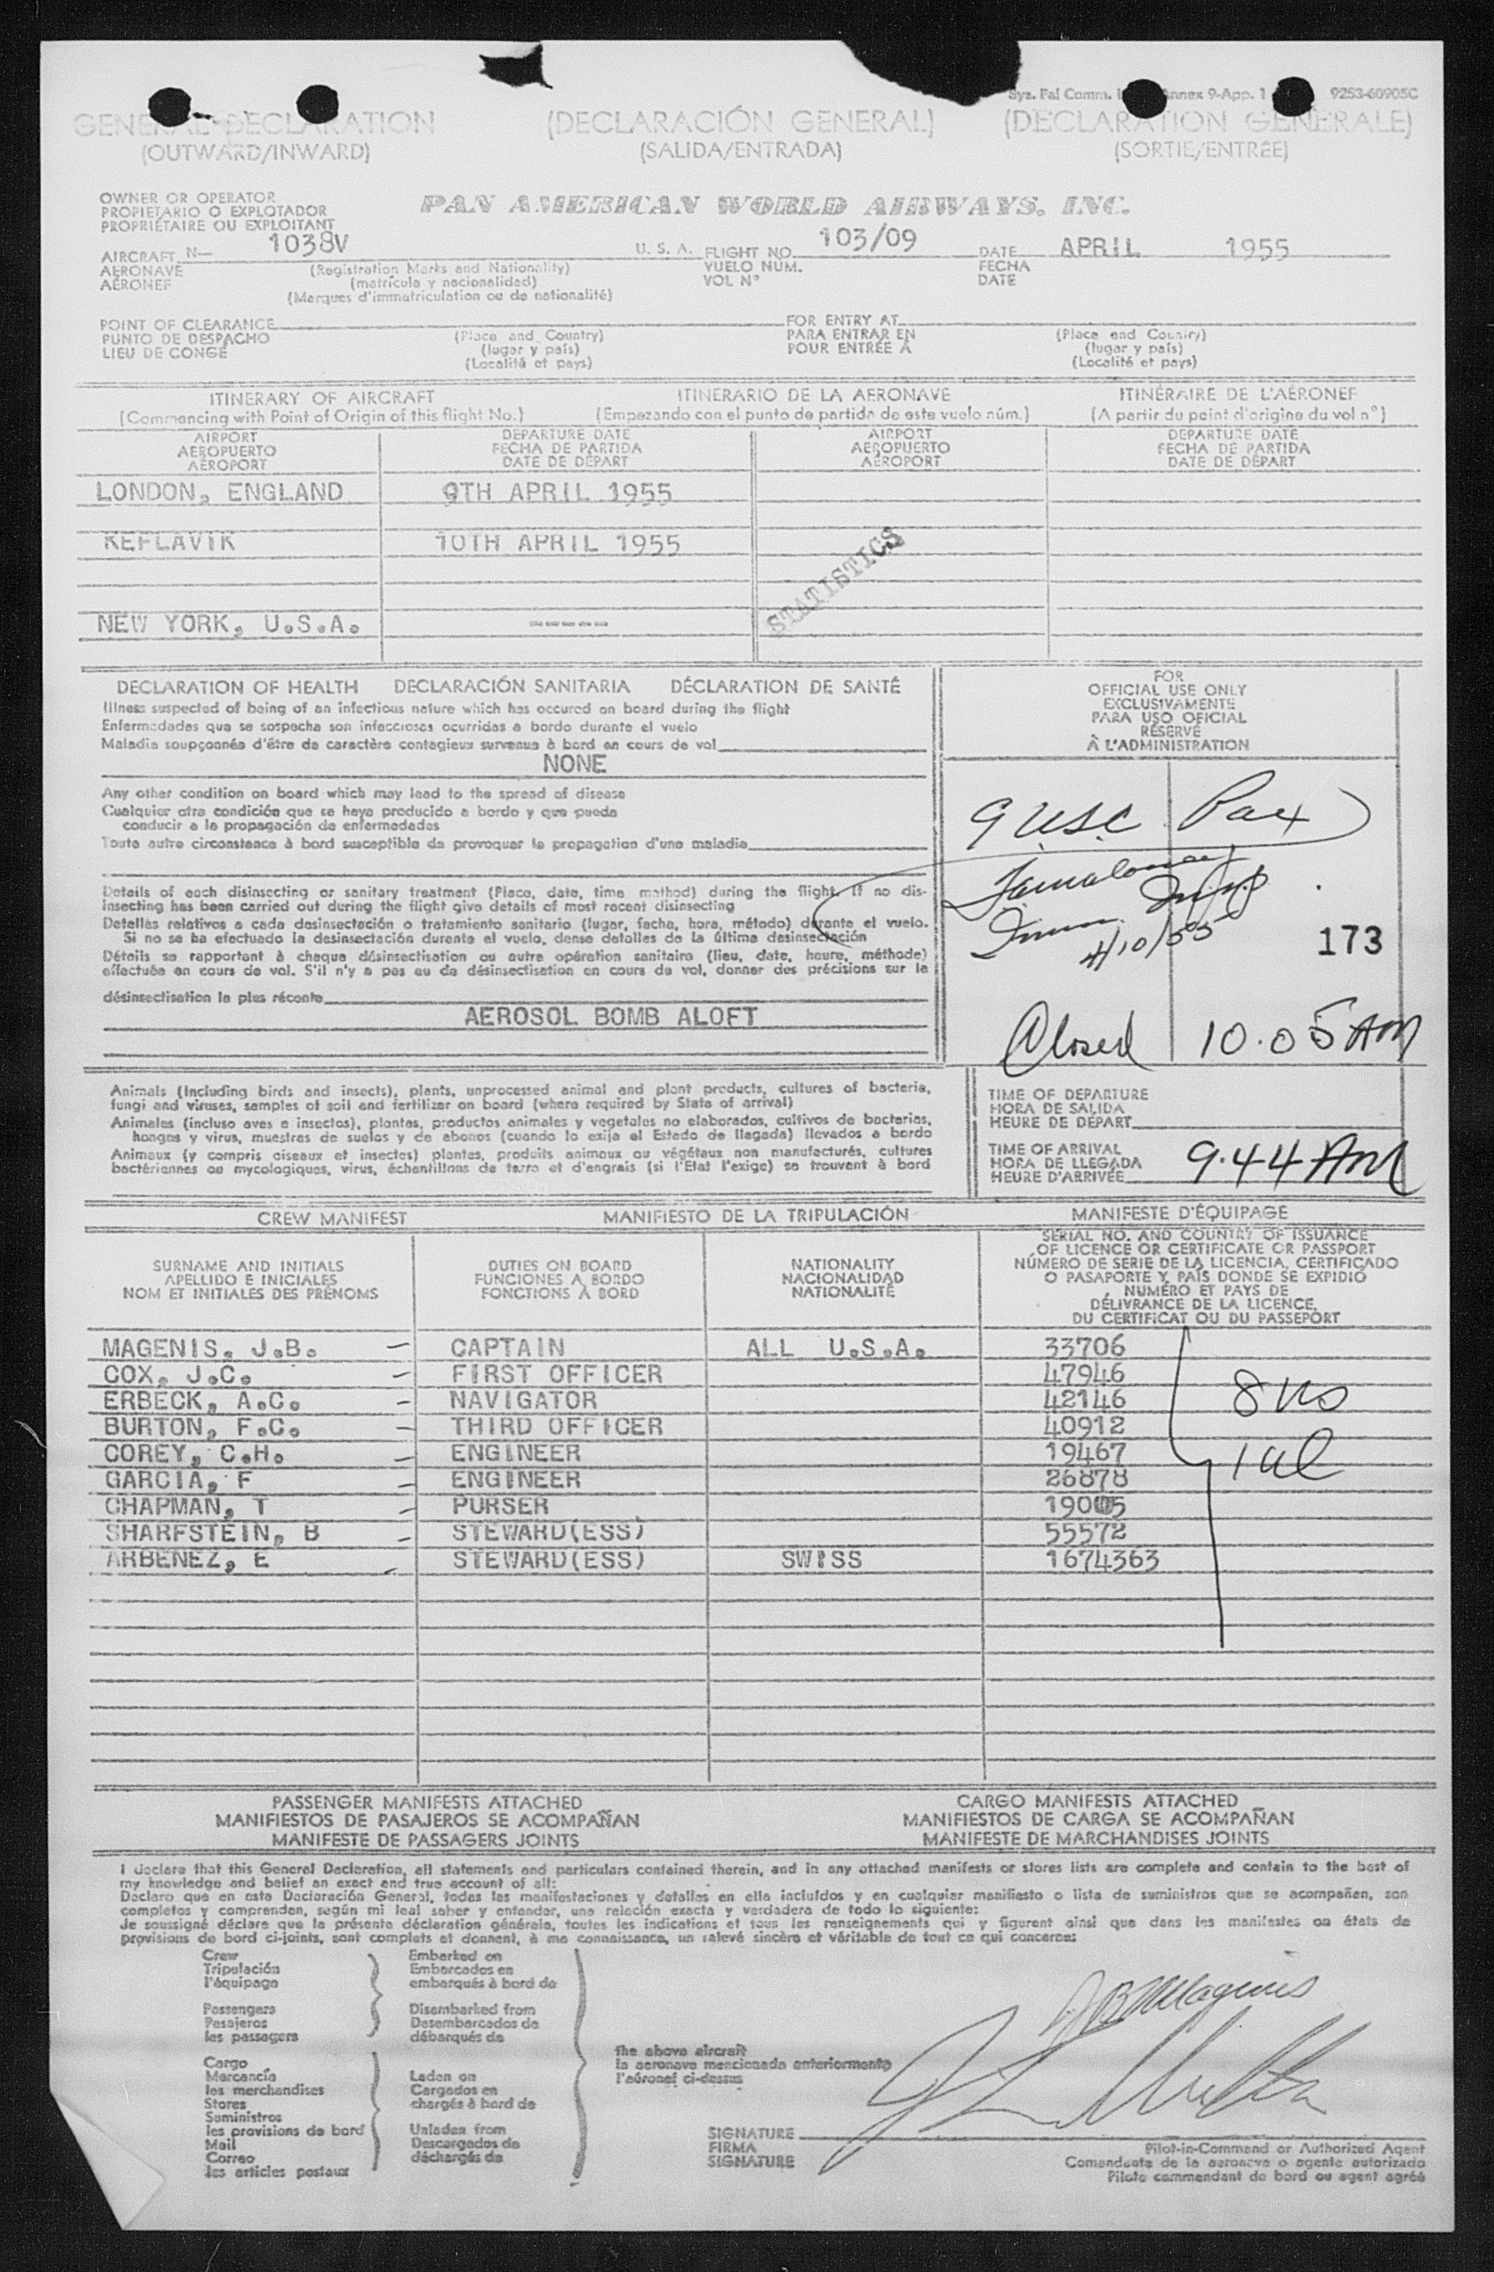 Sys. Fal Comm. Annex 9-App. 1 9253-60905C
GENERAL DECLARATION (DECLARACIÓN GENERAL) (DECLARATION GENERALE)
(OUTWARD/INWARD) (SALIDA/ENTRADA) (SORTIE/ENTRÉE)
OWNER OR OPERATOR
PROPIETARIO O EXPLOTADOR PAN AMERICAN WORLD AIRWAYS, INC.
PROPRIÉTAIRE OU EXPLOITANT
AIRCRAFT N— 1038V U. S. A. FLIGHT NO. 103/09 DATE APRIL 1955
AERONAVE (Registration Marks and Nationality) VUELO NUM. FECHA
AÉRONEF (matrícula y nacionalidad) VOL N° DATE
(Marques d'immatriculation ou de nationalité)
POINT OF CLEARANCE FOR ENTRY AT
PUNTO DE DESPACHO (Place and Country) PARA ENTRAR EN (Place and Country)
LIEU DE CONGÉ (lugar y país) POUR ENTRÉE À (lugar y país)
(Localité et pays) (Localité et pays)
ITINERARY OF AIRCRAFT ITINERARIO DE LA AERONAVE ITINÉRAIRE DE L'AÉRONEF
(Commencing with Point of Origin of this flight No.) (Empezando con el punto de partida de este vuelo núm.) (A partir du point d'origine du vol n°)
AIRPORT DEPARTURE DATE AIRPORT DEPARTURE DATE
AEROPUERTO FECHA DE PARTIDA AEROPUERTO FECHA DE PARTIDA
AÉROPORT DATE DE DÉPART AÉROPORT DATE DE DÉPART
LONDON, ENGLAND 9TH APRIL 1955
KEFLAVIK 10TH APRIL 1955
STATISTICS
NEW YORK, U.S.A. -----
DECLARATION OF HEALTH DECLARACIÓN SANITARIA DÉCLARATION DE SANTÉ
Illness suspected of being of an infectious nature which has occured on board during the flight
Enfermedades que se sospecha son infecciosas ocurridas a bordo durante el vuelo
Maladie soupçonnée d'être de caractère contagieux survenue à bord en cours de vol
NONE
Any other condition on board which may lead to the spread of disease
Cualquier otra condición que se haya producido a bordo y que pueda
conducir a la propagación de enfermedades
Toute autre circonstance à bord susceptible de provoquer la propagation d'une maladie
Details of each disinsecting or sanitary treatment (Place, date, time method) during the flight. If no dis-
insecting has been carried out during the flight give details of most recent disinsecting
Detalles relativos a cada desinsectación o tratamiento sanitario (lugar, fecha, hora, método) durante el vuelo.
Si no se ha efectuado la desinsectación durante el vuelo, dense detalles de la última desinsectación
Détails se rapportant à chaque désinsectisation ou autre opération sanitaire (lieu, date, heure, méthode)
effectuée en cours de vol. S'il n'y a pas eu de désinsectisation en cours de vol, donner des précisions sur la
désinsectisation la plus récente
AEROSOL BOMB ALOFT
FOR
OFFICIAL USE ONLY
EXCLUSIVAMENTE
PARA USO OFICIAL
RÉSERVÉ
À L'ADMINISTRATION
9 USC Pax
4/10/55
173
Closed 10.05 AM
Animals (Including birds and insects), plants, unprocessed animal and plant products, cultures of bacteria,
fungi and viruses, samples of soil and fertilizer on board (where required by State of arrival)
Animales (incluso aves e insectos), plantas, productos animales y vegetales no elaborados, cultivos de bacterias,
hongos y virus, muestras de suelos y de abonos (cuando lo exija el Estado de llegada) llevados a bordo
Animaux (y compris oiseaux et insectes) plantes, produits animaux ou végétaux non manufacturés, cultures
bactériennes ou mycologiques, virus, échantillons de terre et d'engrais (si l'Etat l'exige) se trouvant à bord
TIME OF DEPARTURE
HORA DE SALIDA
HEURE DE DÉPART
TIME OF ARRIVAL
HORA DE LLEGADA 9.44 AM
HEURE D'ARRIVÉE
CREW MANIFEST MANIFIESTO DE LA TRIPULACIÓN MANIFESTE D'ÉQUIPAGE
SURNAME AND INITIALS
APELLIDO E INICIALES
NOM ET INITIALES DES PRÉNOMS
DUTIES ON BOARD
FUNCIONES A BORDO
FONCTIONS À BORD
NATIONALITY
NACIONALIDAD
NATIONALITÉ
SERIAL NO. AND COUNTRY OF ISSUANCE
OF LICENCE OR CERTIFICATE OR PASSPORT
NÚMERO DE SERIE DE LA LICENCIA, CERTIFICADO
O PASAPORTE Y PAÍS DONDE SE EXPIDIÓ
NUMÉRO ET PAYS DE
DÉLIVRANCE DE LA LICENCE,
DU CERTIFICAT OU DU PASSEPORT
MAGENIS, J.B. — CAPTAIN ALL U.S.A. 33706
COX, J.C. — FIRST OFFICER 47946
ERBECK, A.C. — NAVIGATOR 42146
BURTON, F.C. — THIRD OFFICER 40912
COREY, C.H. — ENGINEER 19467
GARCIA, F — ENGINEER 26878
CHAPMAN, T — PURSER 19005
SHARFSTEIN, B — STEWARD(ESS) 55572
ARBENEZ, E — STEWARD(ESS) SWISS 1674363
8 US
1 al
PASSENGER MANIFESTS ATTACHED CARGO MANIFESTS ATTACHED
MANIFIESTOS DE PASAJEROS SE ACOMPAÑAN MANIFIESTOS DE CARGA SE ACOMPAÑAN
MANIFESTE DE PASSAGERS JOINTS MANIFESTE DE MARCHANDISES JOINTS
I declare that this General Declaration, all statements and particulars contained therein, and in any attached manifests or stores lists are complete and contain to the best of
my knowledge and belief an exact and true account of all:
Declaro que en esta Declaración General, todas las manifestaciones y detalles en ella incluídos y en cualquier manifiesto o lista de suministros que se acompañen, son
completos y comprenden, según mi leal saber y entender, una relación exacta y verdadera de todo lo siguiente:
Je soussigné déclare que la présente déclaration générale, toutes les indications et tous les renseignements qui y figurent ainsi que dans les manifestes ou états de
provisions de bord ci-joints, sont complets et donnent, à ma connaissance, un relevé sincère et véritable de tout ce qui concerne:
Crew
Tripulación
l'équipage
Passengers
Pasajeros
les passagers
Cargo
Mercancía
les merchandises
Stores
Suministros
les provisions de bord
Mail
Correo
les articles postaux
Embarked on
Embarcados en
embarqués à bord de
Disembarked from
Desembarcados de
débarqués de
Laden on
Cargados en
chargés à bord de
Unladen from
Descargados de
déchargés de
the above aircraft
la aeronave mencionada anteriormente
l'aéronef ci-dessus
JB Magenis
SIGNATURE
FIRMA
SIGNATURE
Pilot-in-Command or Authorized Agent
Comandante de la aeronave o agente autorizado
Pilote commandant de bord ou agent agréé